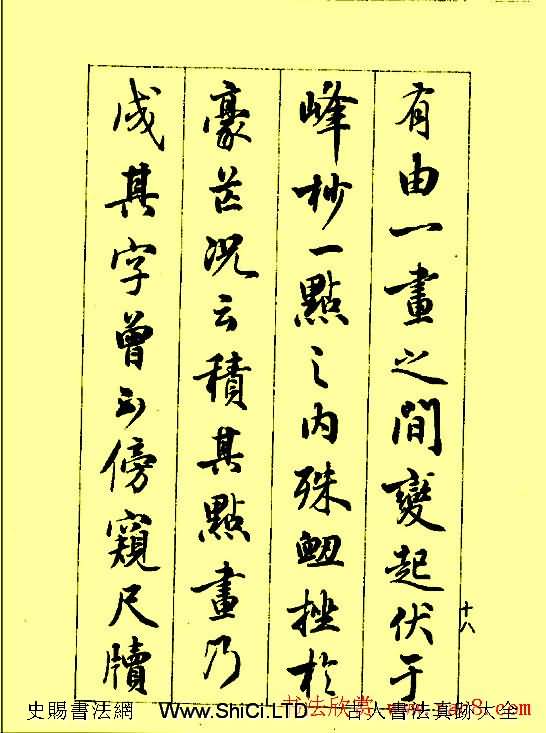 有由一畫之間變起伏于
峰杪一點之内殊衄挫於
豪芒况云積其點畫乃
成其字曾不傍窺尺牘
十八
史賜書法網 Www.ShiCi.LTD 古人書法真跡大全
书法欣赏